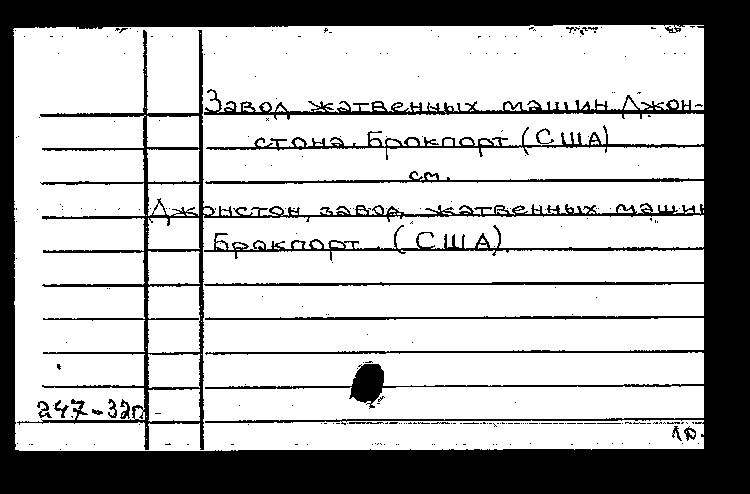 Завод жатвенных машин Джон-
стона. Брокпорт (США)
см.
Джонстон, завод жатвенных машин
Брокпорт. (США)
247-32п
1 р.